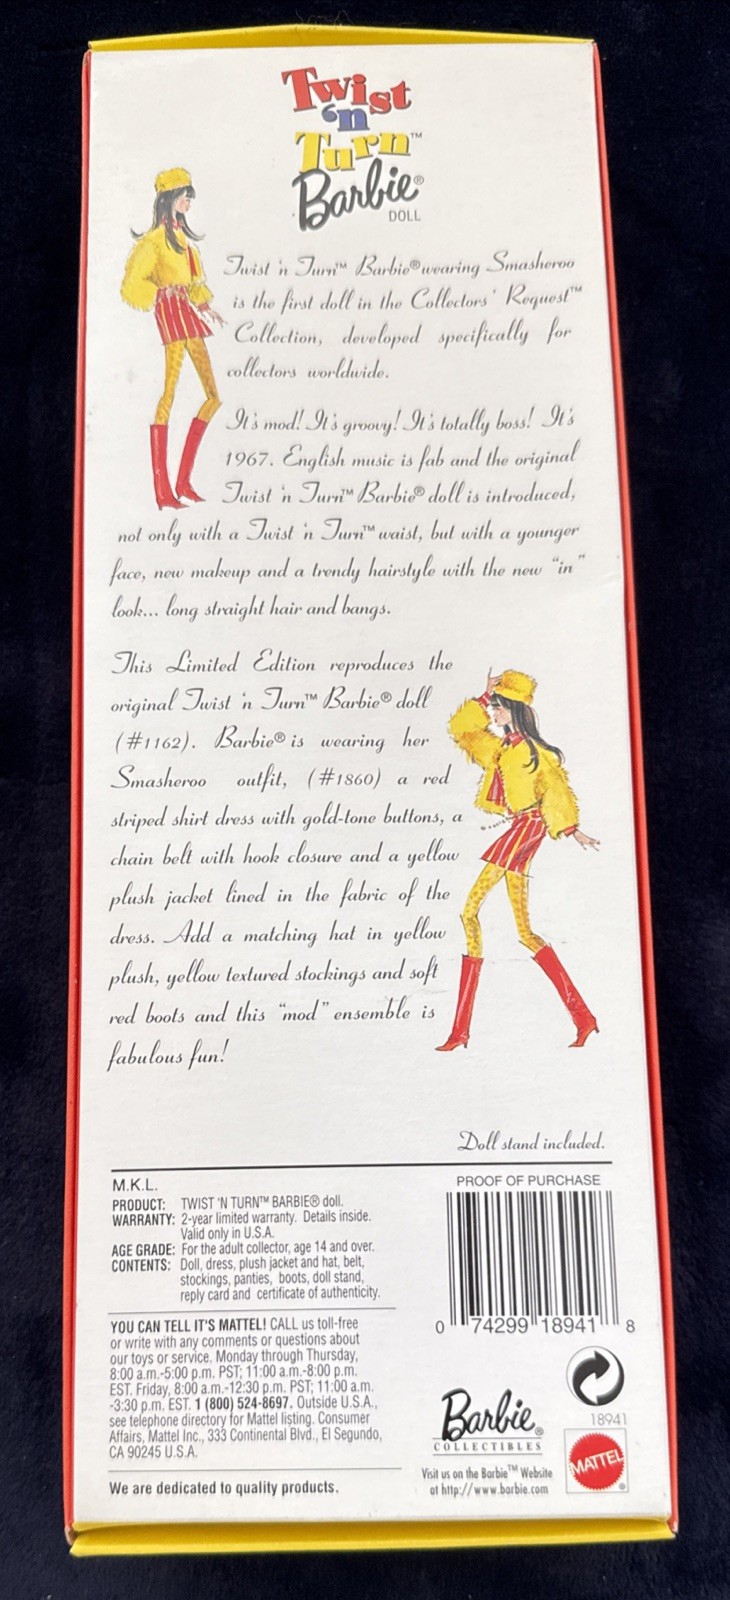 Twist
'n
Turn™
Barbie®
DOLL
Twist 'n Turn™ Barbie® wearing Smasheroo
is the first doll in the Collectors' Request™
Collection, developed specifically for
collectors worldwide.
It's mod! It's groovy! It's totally boss! It's
1967. English music is fab and the original
Twist 'n Turn™ Barbie® doll is introduced,
not only with a Twist 'n Turn™ waist, but with a younger
face, new makeup and a trendy hairstyle with the new "in"
look... long straight hair and bangs.
This Limited Edition reproduces the
original Twist 'n Turn™ Barbie® doll
(#1162). Barbie® is wearing her
Smasheroo outfit, (#1860) a red
striped shirt dress with gold-tone buttons, a
chain belt with hook closure and a yellow
plush jacket lined in the fabric of the
dress. Add a matching hat in yellow
plush, yellow textured stockings and soft
red boots and this "mod" ensemble is
fabulous fun!
Doll stand included.
M.K.L.
PRODUCT: TWIST 'N TURN™ BARBIE® doll.
WARRANTY: 2-year limited warranty. Details inside.
Valid only in U.S.A.
AGE GRADE: For the adult collector, age 14 and over.
CONTENTS: Doll, dress, plush jacket and hat, belt,
stockings, panties, boots, doll stand,
reply card and certificate of authenticity.
YOU CAN TELL IT'S MATTEL! CALL us toll-free
or write with any comments or questions about
our toys or service. Monday through Thursday,
8:00 a.m.-5:00 p.m. PST; 11:00 a.m.-8:00 p.m.
EST. Friday, 8:00 a.m.-12:30 p.m. PST; 11:00 a.m.
-3:30 p.m. EST. 1 (800) 524-8697. Outside U.S.A.,
see telephone directory for Mattel listing. Consumer
Affairs, Mattel Inc., 333 Continental Blvd., El Segundo,
CA 90245 U.S.A.
We are dedicated to quality products.
PROOF OF PURCHASE
0 74299 18941 8
18941
Barbie®
COLLECTIBLES
Visit us on the Barbie™ Website
at http://www.barbie.com
MATTEL®